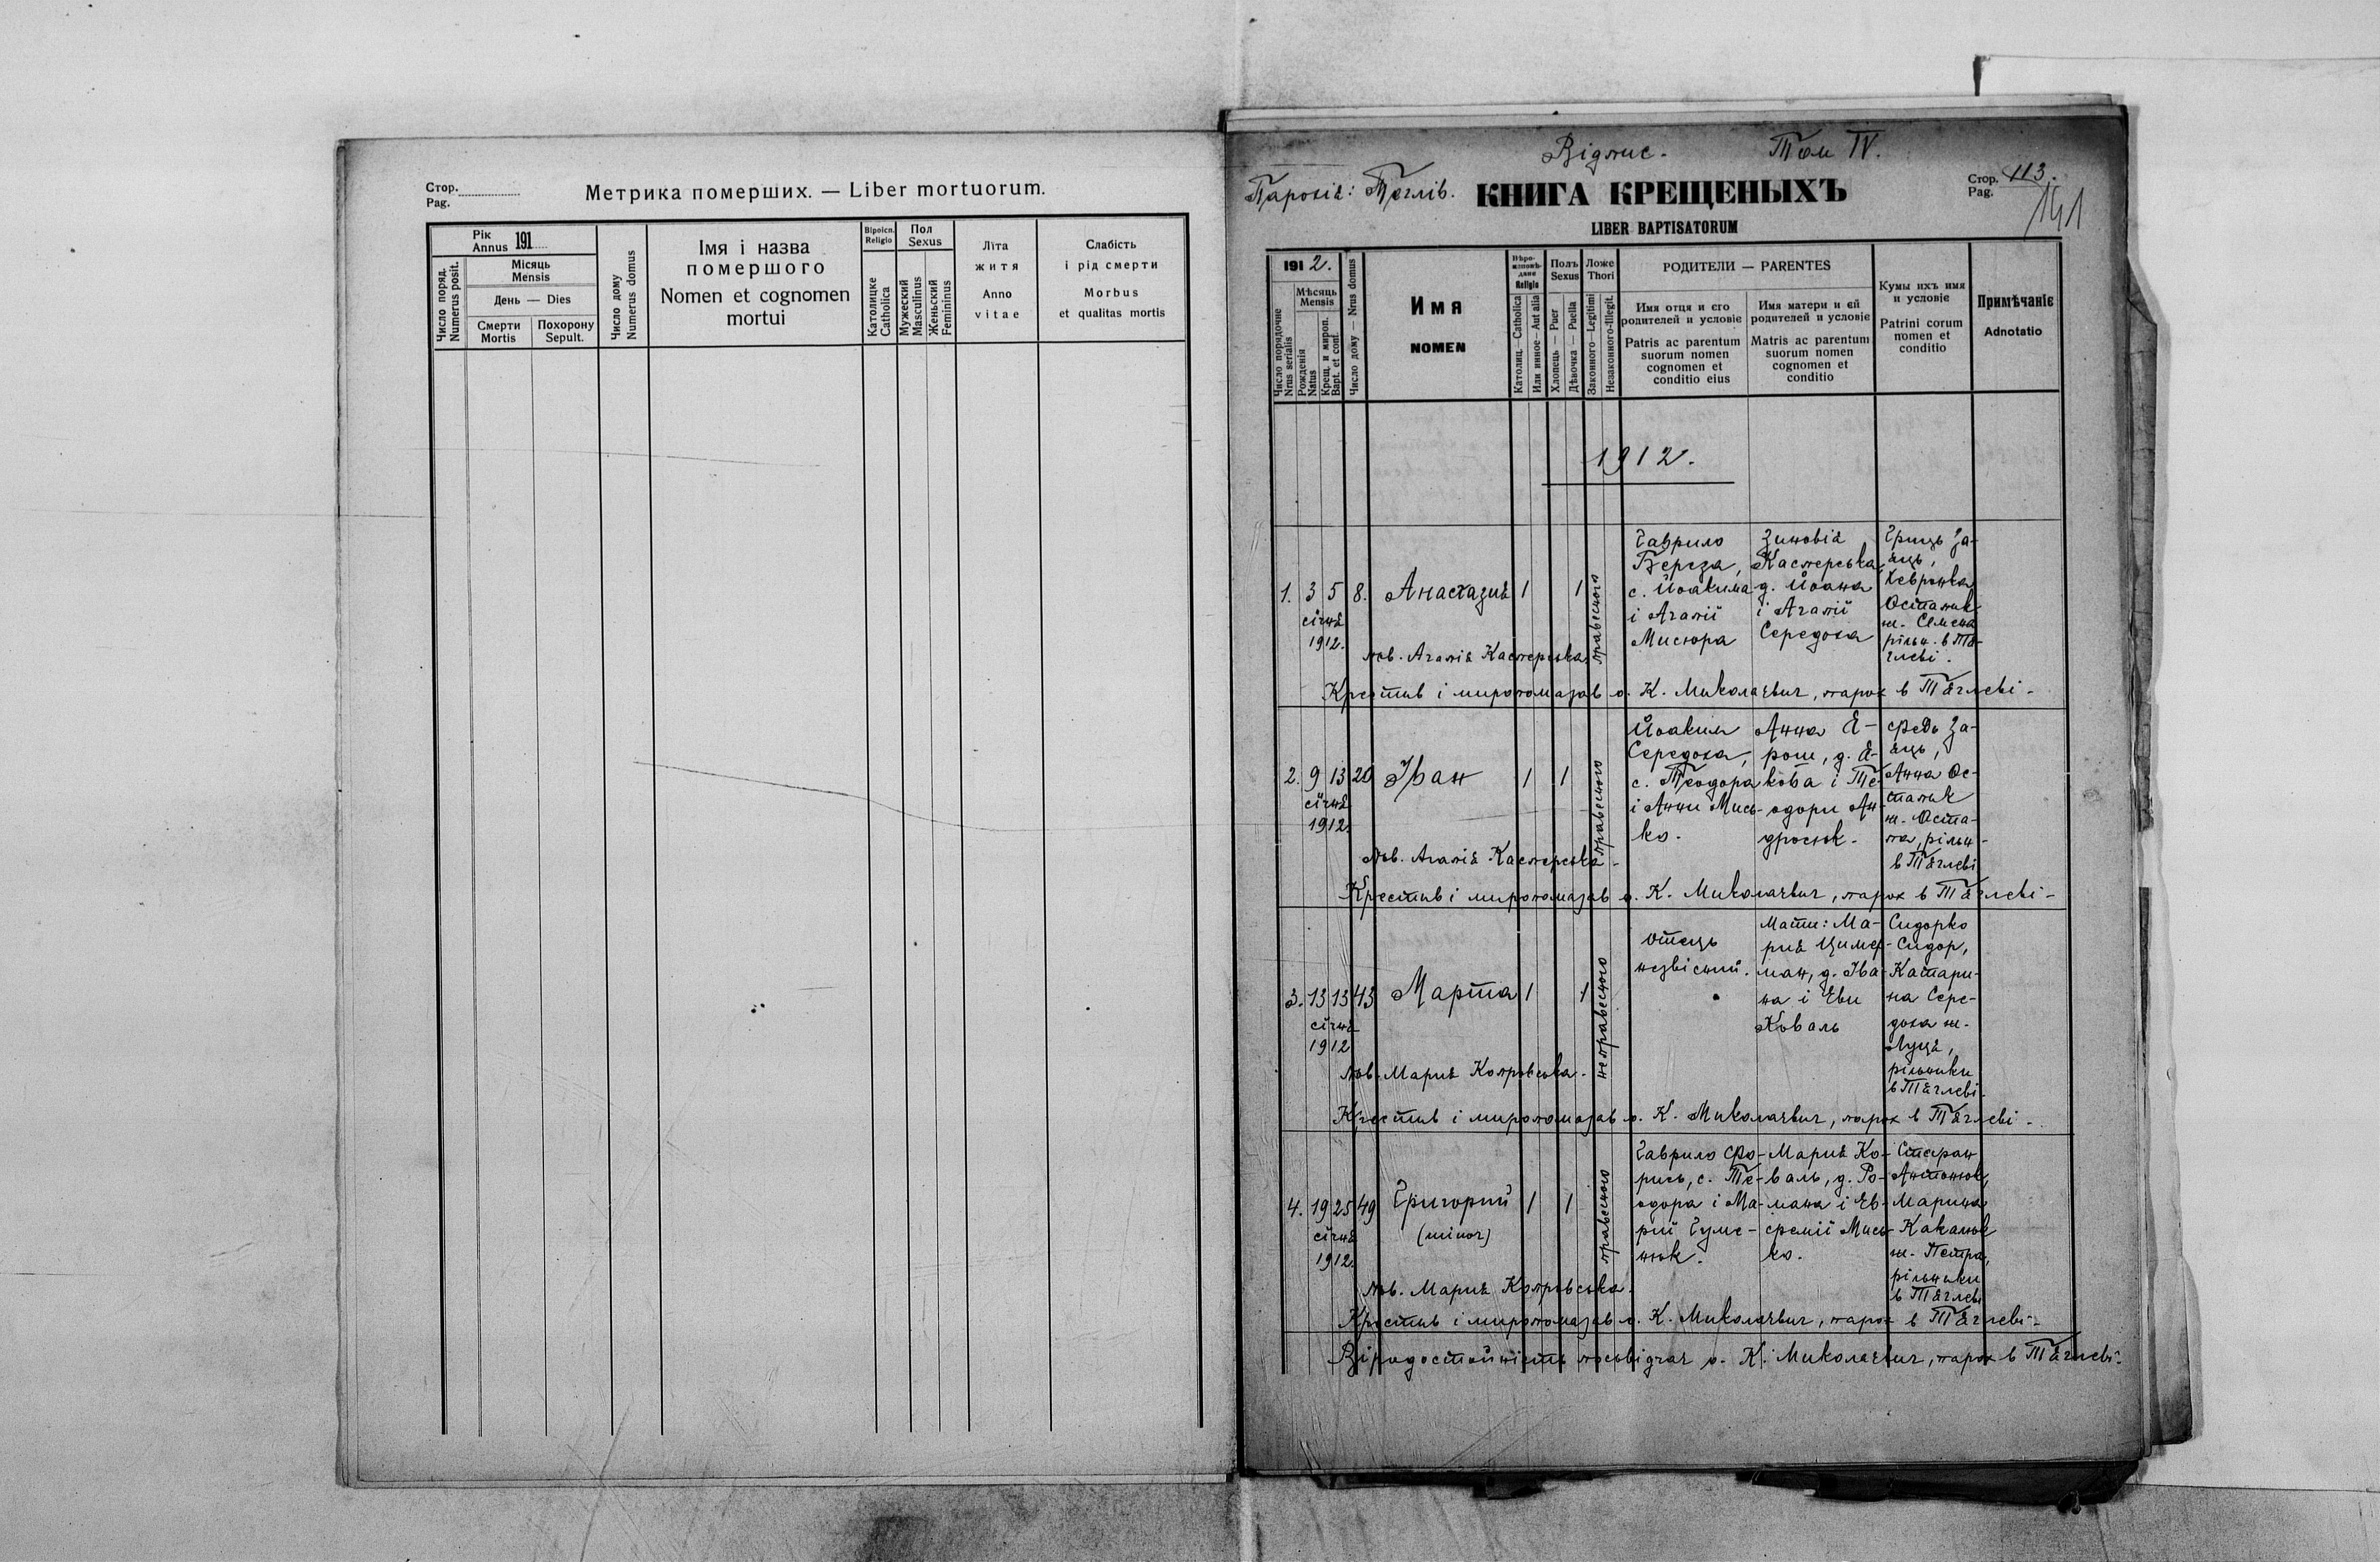 Стор.
Pag.
Метрика померших. — Liber mortuorum.
Рік
Annus 191
Число поряд.
Numerus posit.
Місяць
Mensis
День — Dies
Смерти
Mortis
Похорону
Sepult.
Число дому
Numerus domus
Імя і назва
помершого
Nomen et cognomen
mortui
Віроісп.
Religio
Католицке
Catholica
Пол
Sexus
Мужеский
Masculinus
Женьский
Femininus
Лїта
житя
Anno
vitae
Слабість
і рід смерти
Morbus
et qualitas mortis
Відпис. Том IV.
Парохія: Тяглів.
КНИГА КРЕЩЕНЫХЪ
LIBER BAPTISATORUM
Стор.
Pag. 113.
141
1912.
Число порядочне
Nrus serialis
Мѣсяць
Mensis
Рожденія
Natus
Крещ. и мироп.
Bapt. et conf.
Число дому — Nrus domus
Имя
NOMEN
Религіо
Religio
Католиц.—Catholica
Или инное—Aut alia
Полъ
Sexus
Хлопець — Puer
Дѣвочка — Puella
Ложе
Thori
Законного—Legitimi
Незаконного-Illegit.
РОДИТЕЛИ — PARENTES
Имя отця и єго
родителей и условіе
Patris ac parentum
suorum nomen
cognomen et
conditio eius
Имя матери и єй
родителей и условіе
Matris ac parentum
suorum nomen
cognomen et
conditio
Кумы ихъ имя
и условіе
Patrini eorum
nomen et
conditio
Примѣчаніе
Adnotatio
1912.
1. 3 5 8. Анастазия 1 1
січня
1912.
правесного
Гаврило
Береза,
с. Йоакима
і Агапії
Мисюра
Зиновія
Касперська,
д. Йоана
і Агапії
Середоха
Гриць За-
яць,
Хевронка
Остапюк
ж. Семена
рільн. в Тя-
глеві.
пов. Агапія Касперська.
Крестив і миропомазав о. К. Миколаєвич, парох в Тяглеві -
2. 9 13 20 Іван 1 1
січня
1912.
правесного
Йоаким
Середоха,
с. Теодора
і Анни Мись-
ко.
Анна Я-
рош, д. Я-
кова і Те-
одори Ан-
дросюк.
Федь За-
яць,
Анна Ос-
тапюк
ж. Оста-
па, рільн-
в Тяглеві
пов. Агапія Касперська -
Крестив і миропомазав о. К. Миколаєвич, парох в Тяглеві -
3. 13 13 43 Марта 1 1
січня
1912
неправесного
Отець
незвісний.
Мати: Ма-
рия Цимер-
ман, д. Іва-
на і Еви
Коваль
Сидорко
Сидор,
Катари-
на Сере-
доха ж.
Луця,
рільники
в Тяглеві.
пов. Мария Копровська.
Крестив і миропомазав о. К. Миколаєвич, парох в Тяглеві -
4. 19 25 49 Григорий 1 1
січня (minor)
1912.
правесного
Гаврило Фо-
рись, с. Те-
одора і Ма-
рії Гуме-
нюк.
Мария Ко-
валь, д. Ро-
мана і Ев-
фемії Мись-
ко.
Стефан
Антонюк,
Марина
Каканюк
ж. Петра,
рільники
в Тяглеві
пов. Мария Копровська.
Крестив і миропомазав о. К. Миколаєвич, парох в Тяглеві -
Віродостойність посвідчає о. К. Миколаєвич, парох в Тяглеві.